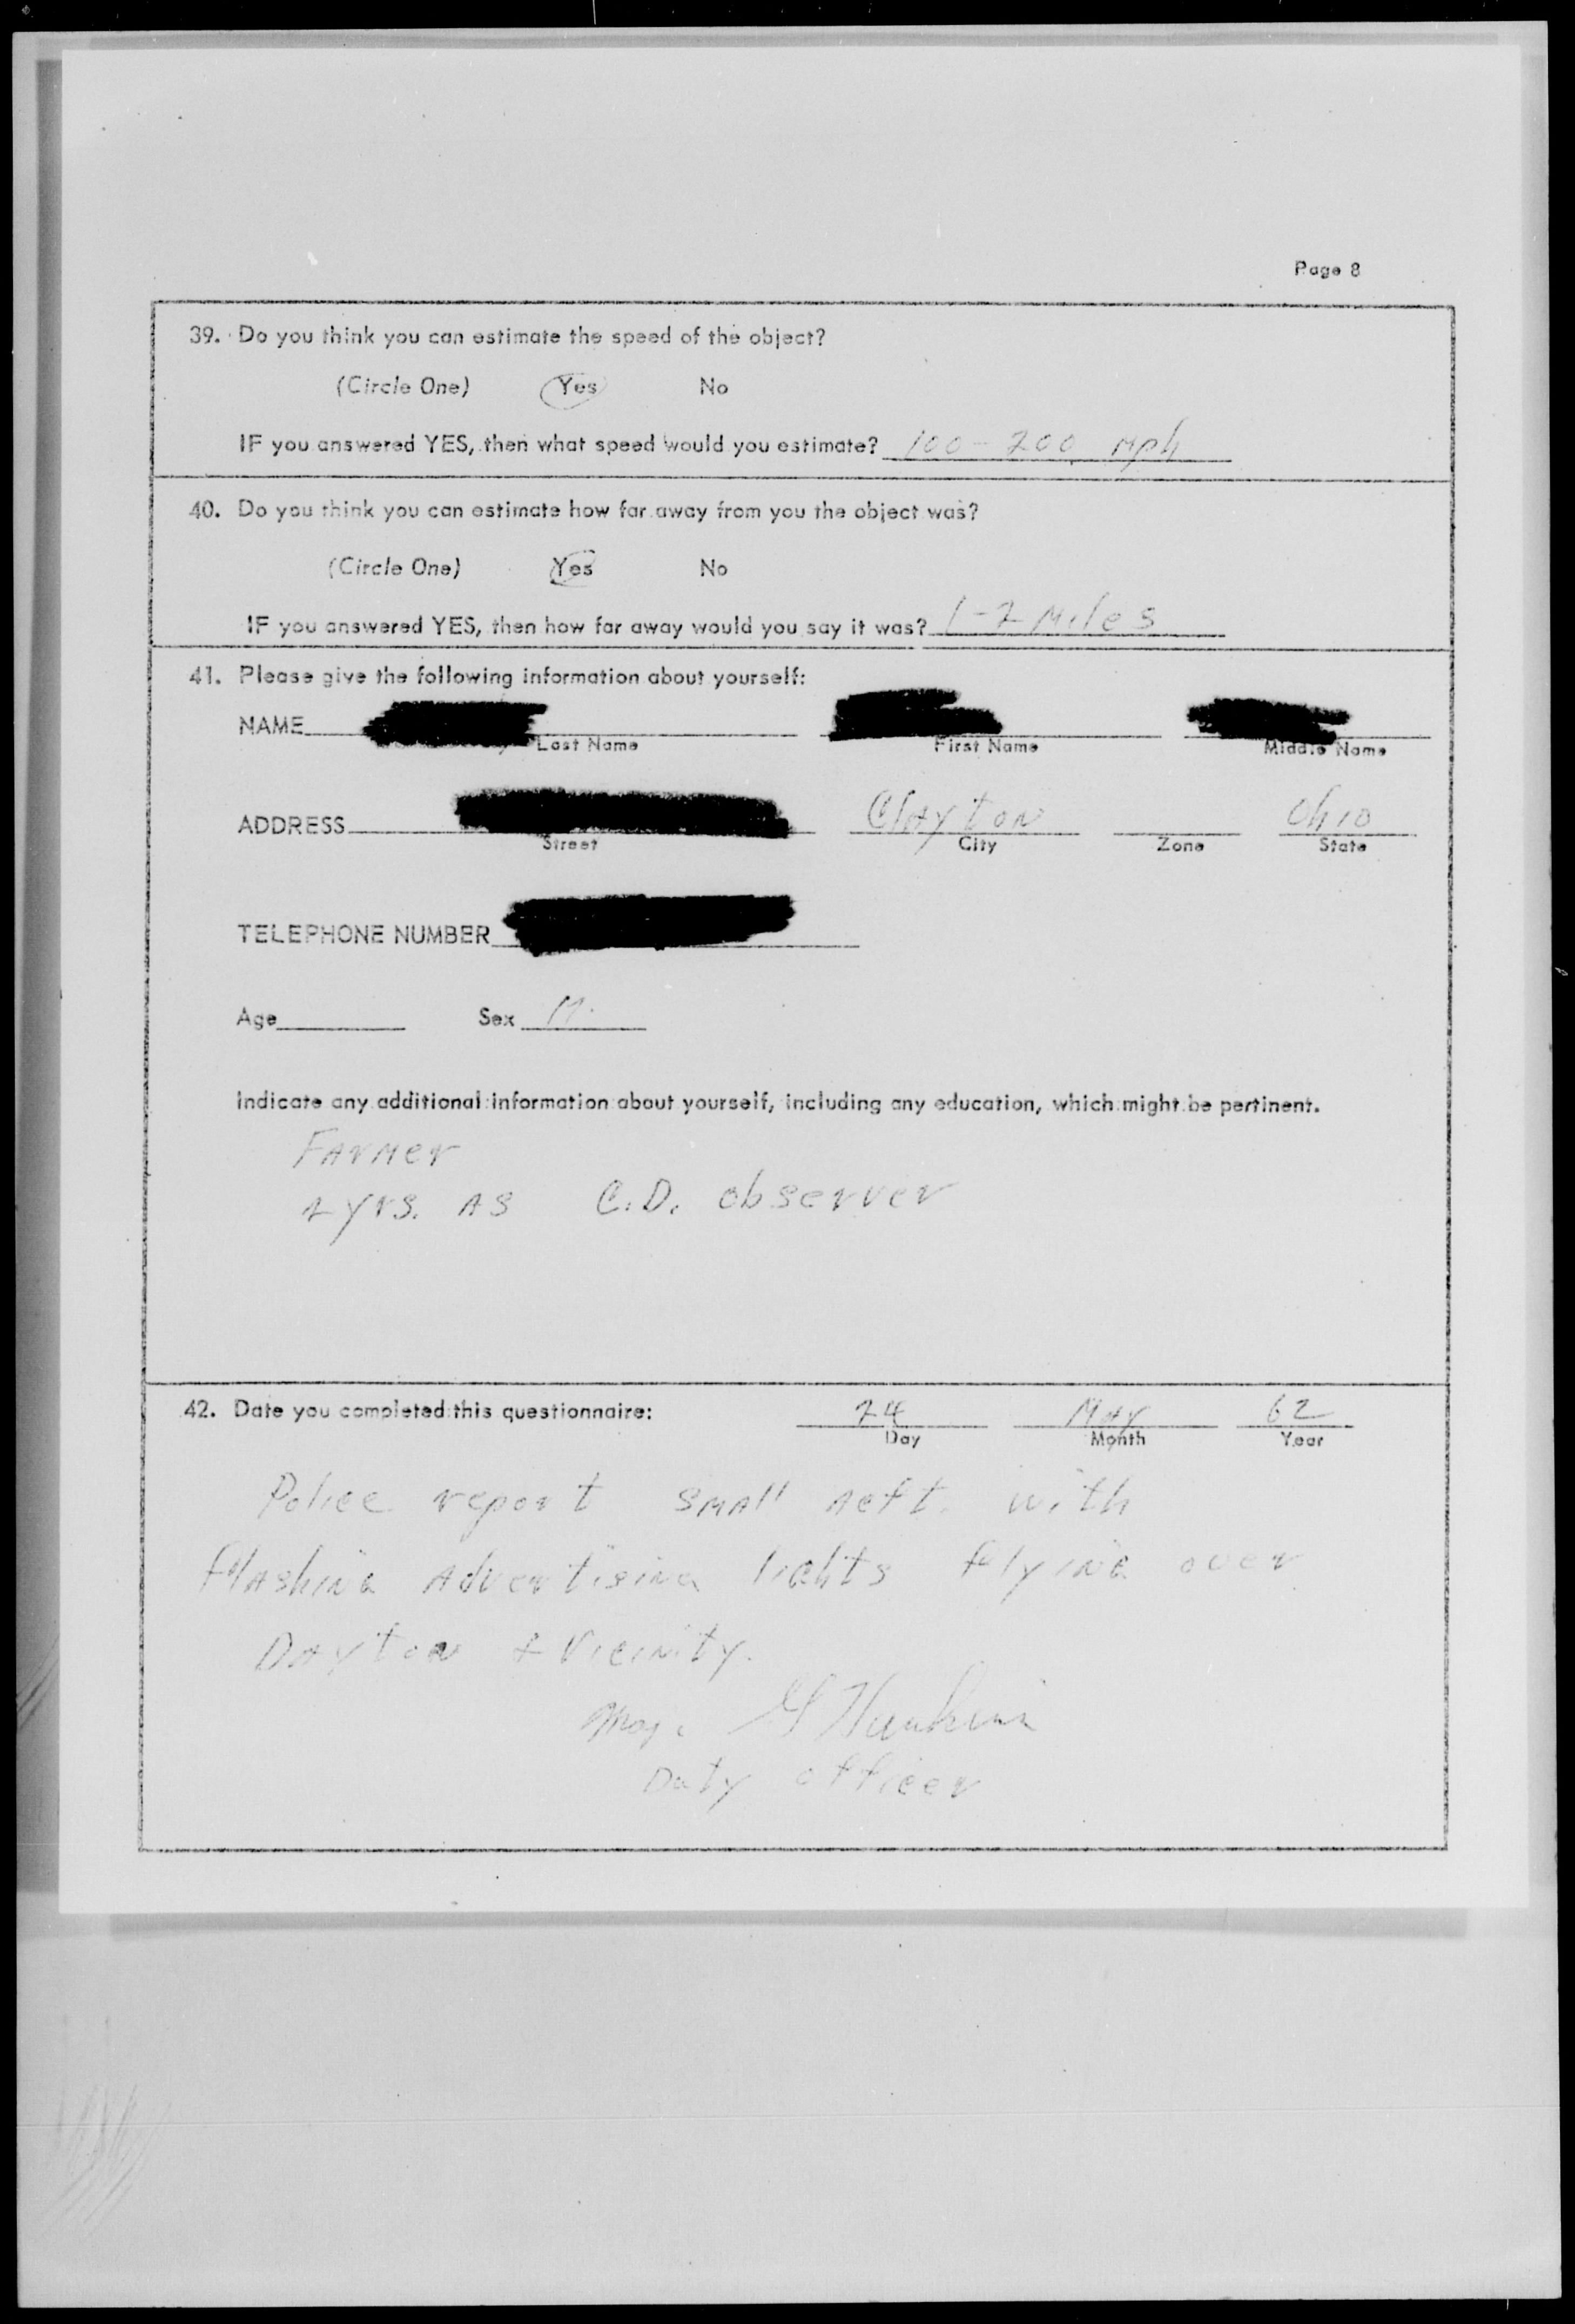 Page 8
39. Do you think you can estimate the speed of the object?
(Circle One) Yes No
IF you answered YES, then what speed would you estimate? 100-200 mph
40. Do you think you can estimate how far away from you the object was?
(Circle One) Yes No
IF you answered YES, then how far away would you say it was? 1-2 Miles
41. Please give the following information about yourself:
NAME
Last Name First Name Middle Name
ADDRESS Clayton Ohio
Street City Zone State
TELEPHONE NUMBER
Age Sex M.
Indicate any additional information about yourself, including any education, which might be pertinent.
Farmer
2 yrs. as C.D. observer
42. Date you completed this questionnaire: 24 May 62
Day Month Year
Police report small acft. with
flashing advertising lights flying over
Dayton & Vicinity.
Maj.
Duty officer